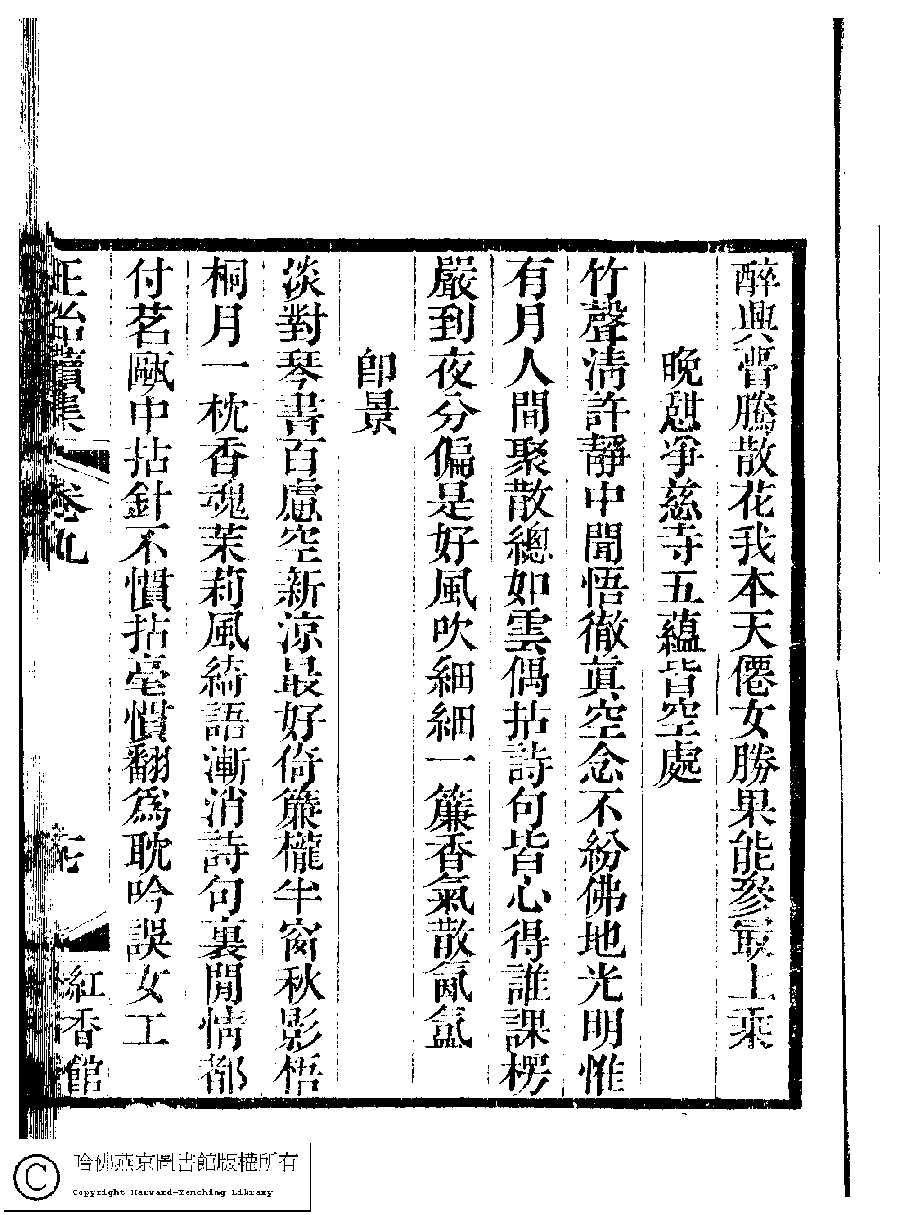 醉興瞢騰散花我本天僊女勝果能參最上乘
晚憩淨慈寺五蘊皆空處
竹聲淸許靜中聞悟徹眞空念不紛佛地光明惟
有月人間聚散總如雲偶拈詩句皆心得誰課楞
嚴到夜分偏是好風吹細細一簾香氣散氤氳
卽景
淡對琴書百慮空新涼最好倚簾櫳半窗秋影梧
桐月一枕香魂茉莉風綺語漸消詩句裏閒情都
付茗甌中拈針不慣拈毫慣翻爲耽吟誤女工
正始續集 卷九 七 紅香館
哈佛燕京圖書館版權所有
Copyright Harvard-Yenching Library